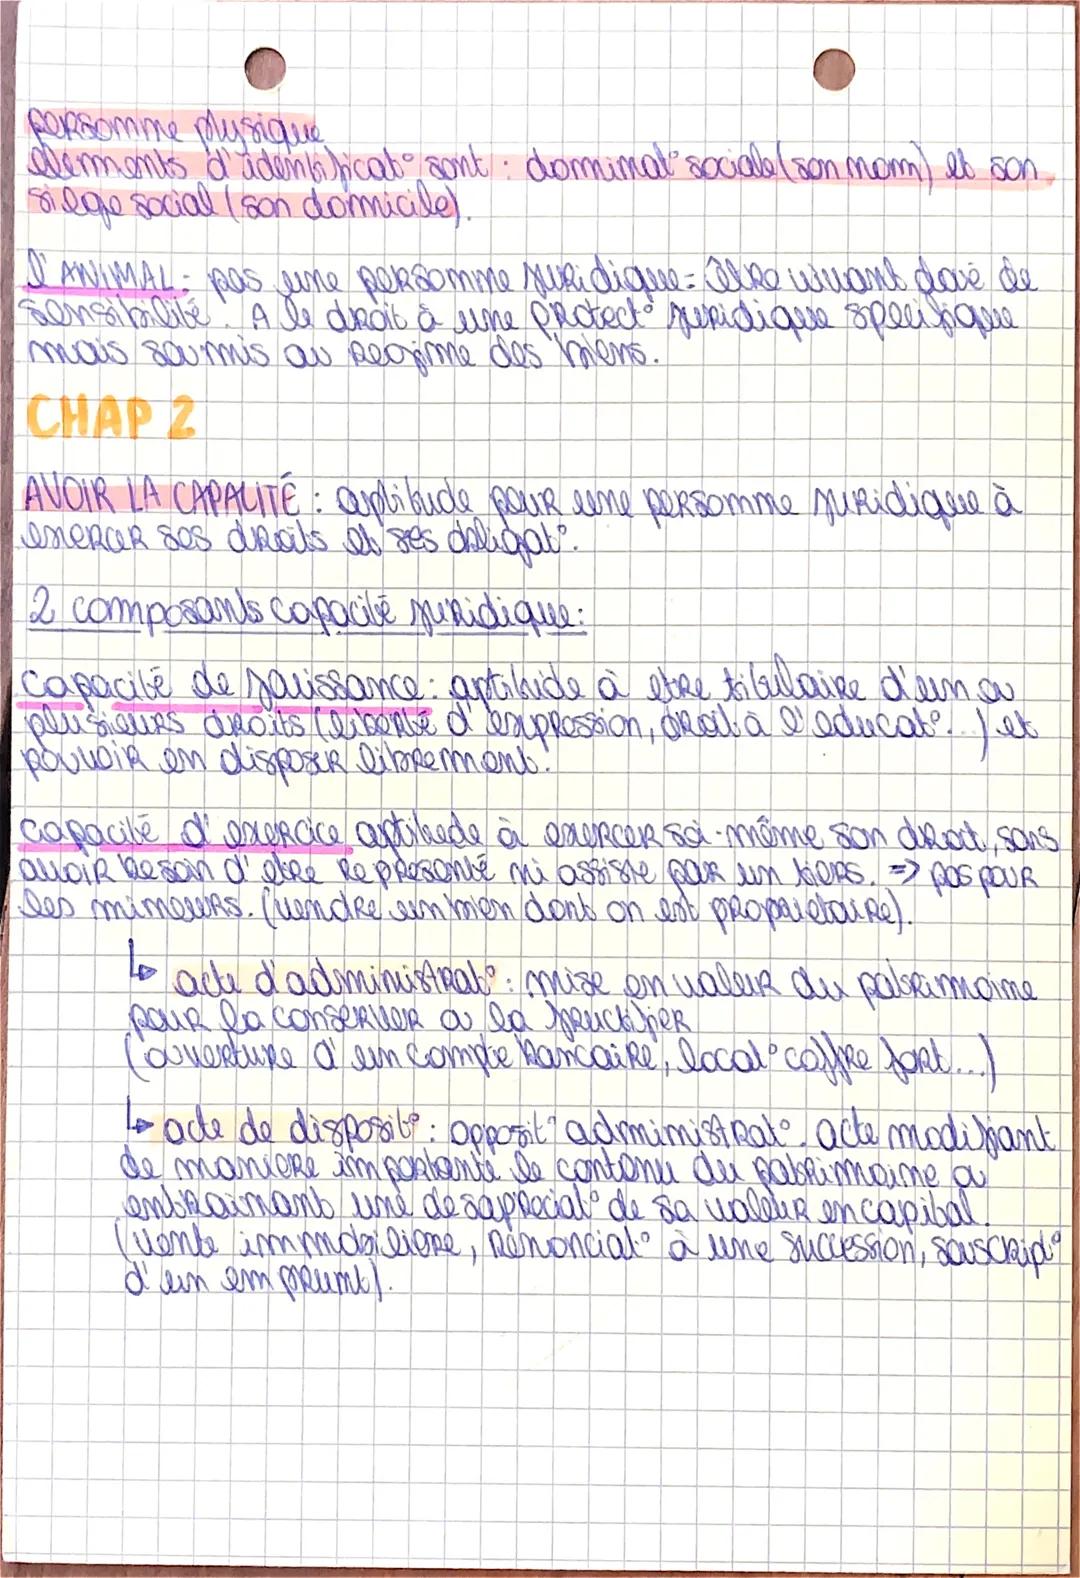 personne physique
elements d'identificat° sont : dominat° sociale (son nom) et son
siege social (son domicile).
L'ANIMAL - pas une personne juridique = Etre vivant doué de
sensibilité. A le droit à une protect° juridique specifique
mais soumis au regime des biens.
CHAP 2
AVOIR LA CAPACITÉ : aptitude pour une personne juridique à
exercer ses droits et ses obligat°.
2 composants capacité juridique :
capacité de jouissance : aptitude à etre titulaire d'un ou
plusieurs droits (liberté d'expression, droit à l'educat°...) et
pouvoir en disposer librement.
capacité d'exercice aptitude à exercer soi-même son droit, sans
avoir besoin d'etre representé ni assisté par un tiers. => pas pour
les mineurs. (vendre un bien dont on est proprietaire).
↳ acte d'administrat° : mise en valeur du patrimoine
pour la conserver ou la fructifier
(ouverture d'un compte bancaire, locat° coffre fort...)
↳ acte de disposit° : opposit° administrat°. acte modifiant
de maniere importante le contenu du patrimoine ou
entrainant une depreciat° de sa valeur en capital.
(vente immobiliere, renonciat° à une succession, souscript°
d'un emprunt).